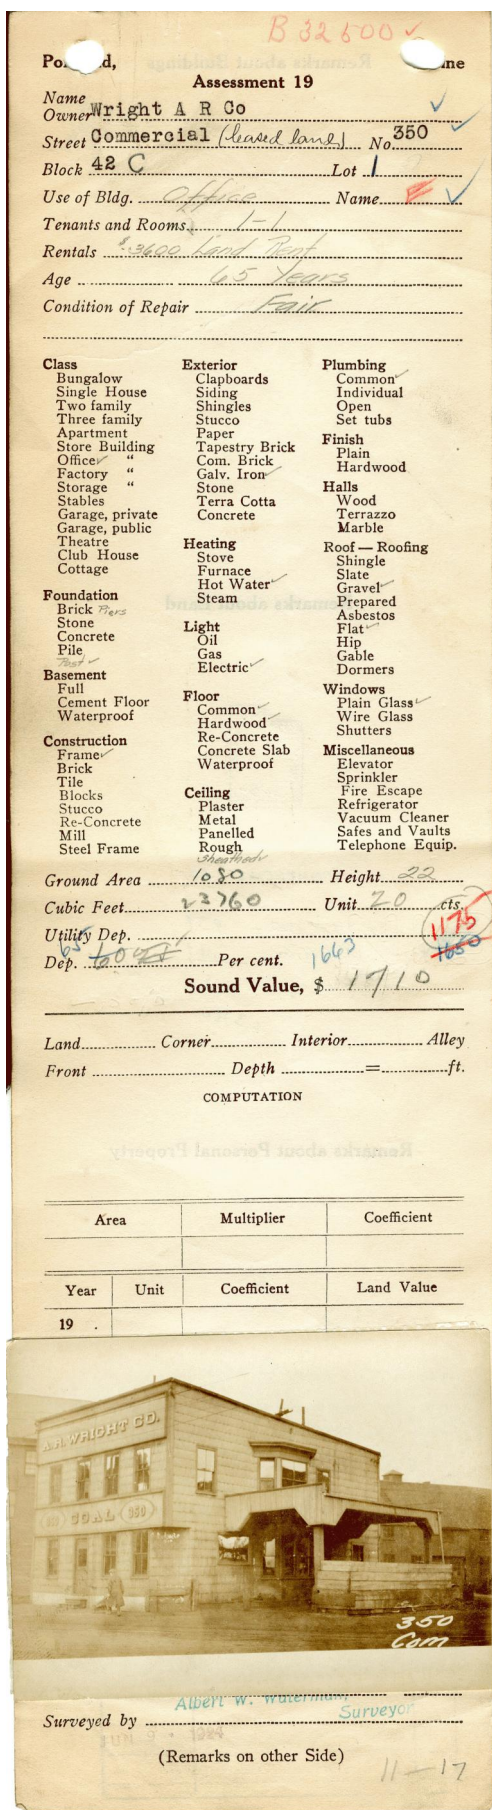 B 32500 ✓
Po d, ne
Assessment 19
Name
Owner Wright A R Co ✓
Street Commercial (leased land) No. 350 ✓
Block 42 C Lot 1
Use of Bldg. Office Name E ✓
Tenants and Rooms 1-1
Rentals $3600 Land Rent
Age 65 Years
Condition of Repair Fair
Class
Bungalow
Single House
Two family
Three family
Apartment
Store Building
Office ✓ "
Factory "
Storage "
Stables
Garage, private
Garage, public
Theatre
Club House
Cottage
Foundation
Brick Piers
Stone
Concrete
Pile
Post ✓
Basement
Full
Cement Floor
Waterproof
Construction
Frame ✓
Brick
Tile
Blocks
Stucco
Re-Concrete
Mill
Steel Frame
Exterior
Clapboards
Siding
Shingles
Stucco
Paper
Tapestry Brick
Com. Brick
Galv. Iron ✓
Stone
Terra Cotta
Concrete
Heating
Stove
Furnace
Hot Water ✓
Steam
Light
Oil
Gas
Electric ✓
Floor
Common ✓
Hardwood ✓
Re-Concrete
Concrete Slab
Waterproof
Ceiling
Plaster
Metal
Panelled
Rough
Sheathed ✓
Plumbing
Common ✓
Individual
Open
Set tubs
Finish
Plain
Hardwood
Halls
Wood
Terrazzo
Marble
Roof — Roofing
Shingle
Slate
Gravel ✓
Prepared
Asbestos
Flat ✓
Hip
Gable
Dormers
Windows
Plain Glass ✓
Wire Glass
Shutters
Miscellaneous
Elevator
Sprinkler
Fire Escape
Refrigerator
Vacuum Cleaner
Safes and Vaults
Telephone Equip.
Ground Area 1080 Height 22
Cubic Feet 23760 Unit 20 cts.
Utility Dep. 1175
65 1663 1650
Dep. 60 Per cent.
Sound Value, $ 1710
Land Corner Interior Alley
Front Depth = ft.
COMPUTATION
Area Multiplier Coefficient
Year Unit Coefficient Land Value
19 .
A.R. WRIGHT CO.
350 COAL 350
350
Com
Albert W. Waterman,
Surveyor
Surveyed by
(Remarks on other Side)
11-17